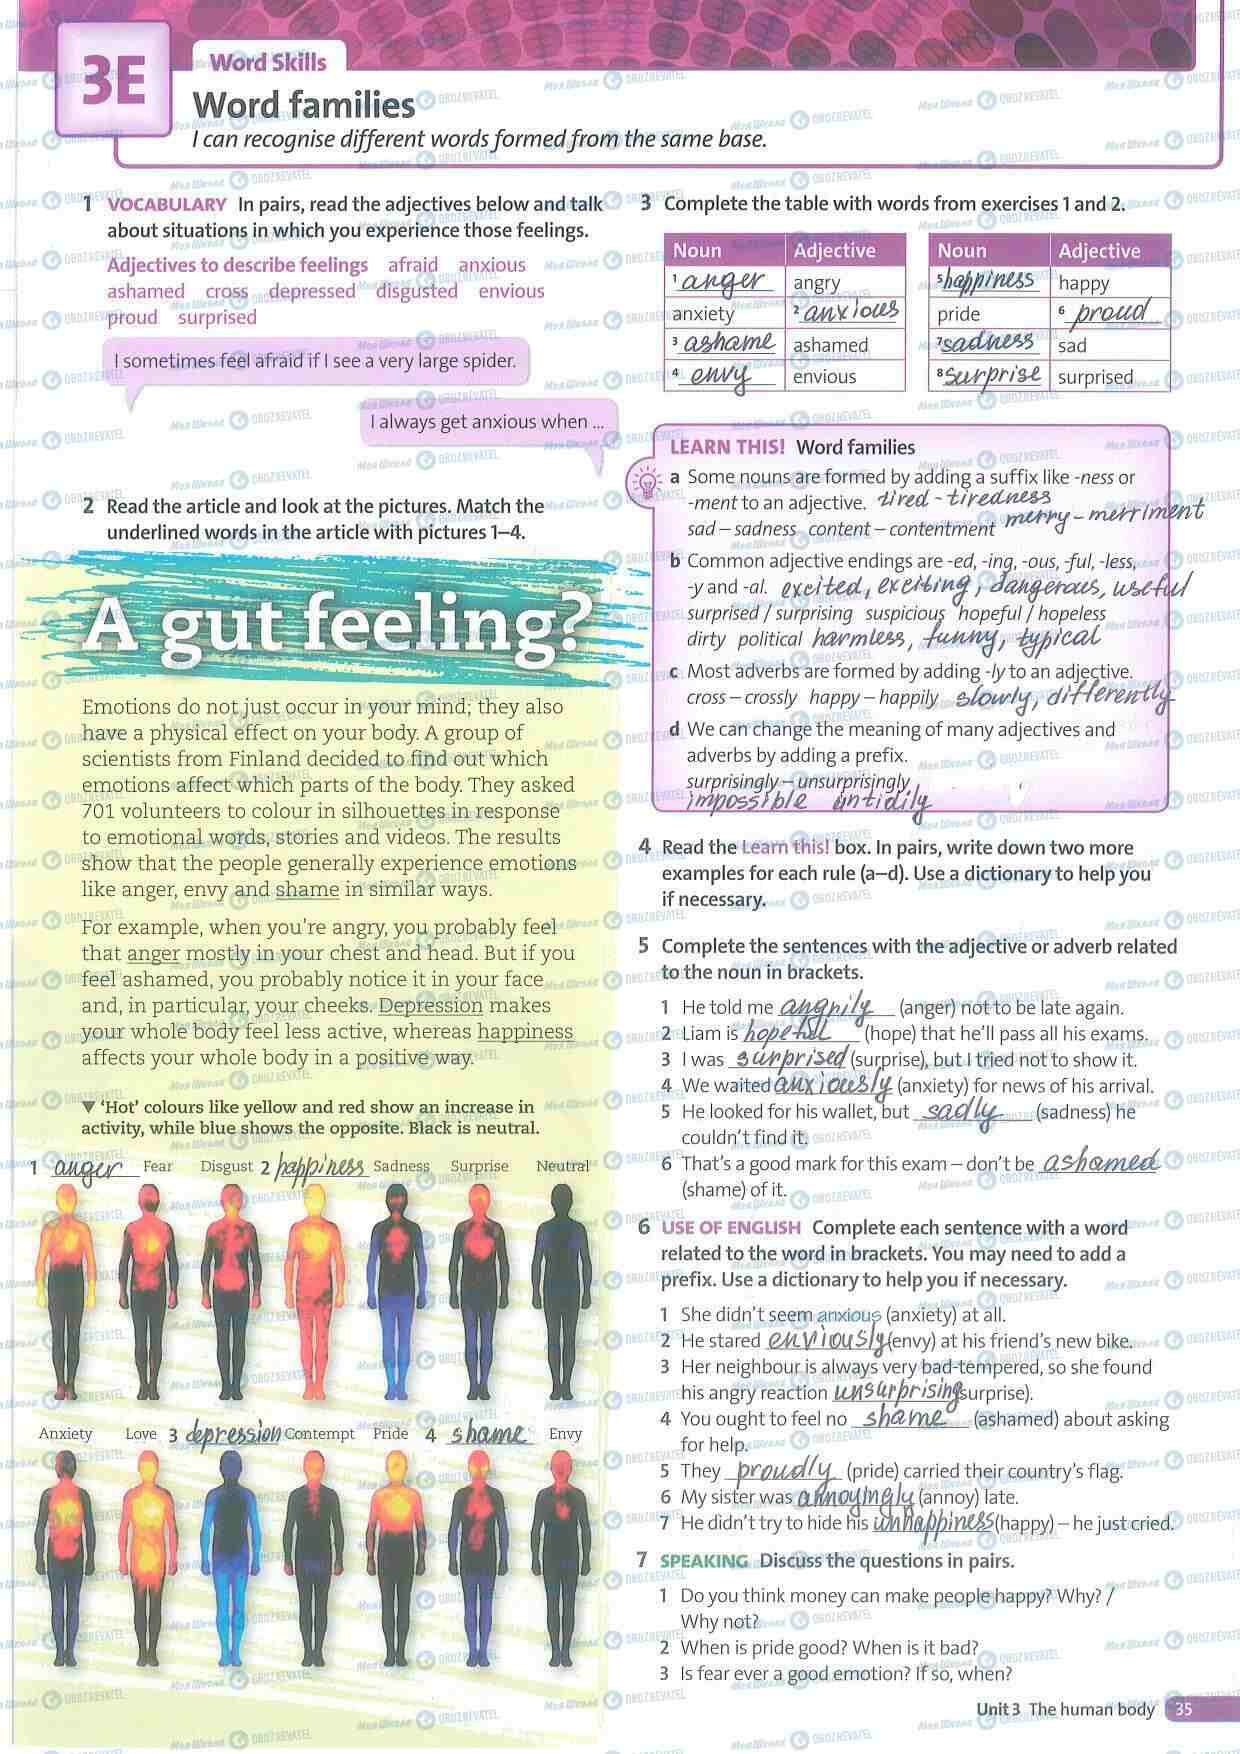 3E
Word Skills
Word families
I can recognise different words formed from the same base.
1 VOCABULARY In pairs, read the adjectives below and talk
about situations in which you experience those feelings.
Adjectives to describe feelings afraid anxious
ashamed cross depressed disgusted envious
proud surprised
I sometimes feel afraid if I see a very large spider.
I always get anxious when ...
2 Read the article and look at the pictures. Match the
underlined words in the article with pictures 1–4.
A gut feeling?
Emotions do not just occur in your mind; they also
have a physical effect on your body. A group of
scientists from Finland decided to find out which
emotions affect which parts of the body. They asked
701 volunteers to colour in silhouettes in response
to emotional words, stories and videos. The results
show that the people generally experience emotions
like anger, envy and shame in similar ways.
For example, when you're angry, you probably feel
that anger mostly in your chest and head. But if you
feel ashamed, you probably notice it in your face
and, in particular, your cheeks. Depression makes
your whole body feel less active, whereas happiness
affects your whole body in a positive way.
▼ 'Hot' colours like yellow and red show an increase in
activity, while blue shows the opposite. Black is neutral.
1 anger Fear Disgust 2 happiness Sadness Surprise Neutral
Anxiety Love 3 depression Contempt Pride 4 shame Envy
3 Complete the table with words from exercises 1 and 2.
Noun Adjective Noun Adjective
1 anger angry 5 happiness happy
anxiety 2 anxious pride 6 proud
3 ashame ashamed 7 sadness sad
4 envy envious 8 surprise surprised
LEARN THIS! Word families
a Some nouns are formed by adding a suffix like -ness or
-ment to an adjective. tired - tiredness
sad – sadness content – contentment merry - merriment
b Common adjective endings are -ed, -ing, -ous, -ful, -less,
-y and -al. excited, exciting, dangerous, useful
surprised / surprising suspicious hopeful / hopeless
dirty political harmless, funny, typical
c Most adverbs are formed by adding -ly to an adjective.
cross – crossly happy – happily slowly, differently
d We can change the meaning of many adjectives and
adverbs by adding a prefix.
surprisingly – unsurprisingly
impossible untidily
4 Read the Learn this! box. In pairs, write down two more
examples for each rule (a–d). Use a dictionary to help you
if necessary.
5 Complete the sentences with the adjective or adverb related
to the noun in brackets.
1 He told me angrily (anger) not to be late again.
2 Liam is hopeful (hope) that he'll pass all his exams.
3 I was surprised (surprise), but I tried not to show it.
4 We waited anxiously (anxiety) for news of his arrival.
5 He looked for his wallet, but sadly (sadness) he
couldn't find it.
6 That's a good mark for this exam – don't be ashamed
(shame) of it.
6 USE OF ENGLISH Complete each sentence with a word
related to the word in brackets. You may need to add a
prefix. Use a dictionary to help you if necessary.
1 She didn't seem anxious (anxiety) at all.
2 He stared enviously (envy) at his friend's new bike.
3 Her neighbour is always very bad-tempered, so she found
his angry reaction unsurprising (surprise).
4 You ought to feel no shame (ashamed) about asking
for help.
5 They proudly (pride) carried their country's flag.
6 My sister was annoyingly (annoy) late.
7 He didn't try to hide his unhappiness (happy) – he just cried.
7 SPEAKING Discuss the questions in pairs.
1 Do you think money can make people happy? Why? /
Why not?
2 When is pride good? When is it bad?
3 Is fear ever a good emotion? If so, when?
Unit 3 The human body 35